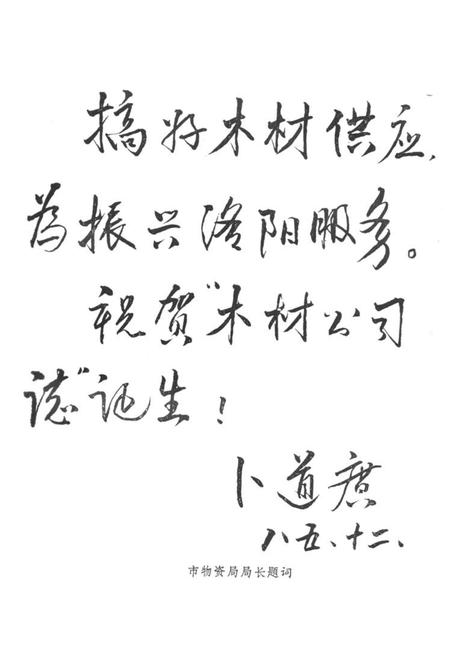 搞好木材供应、
为振兴洛阳服务。
祝贺"木材公司
誌"诞生！
卜道赓
八五、十二、
市物资局局长题词